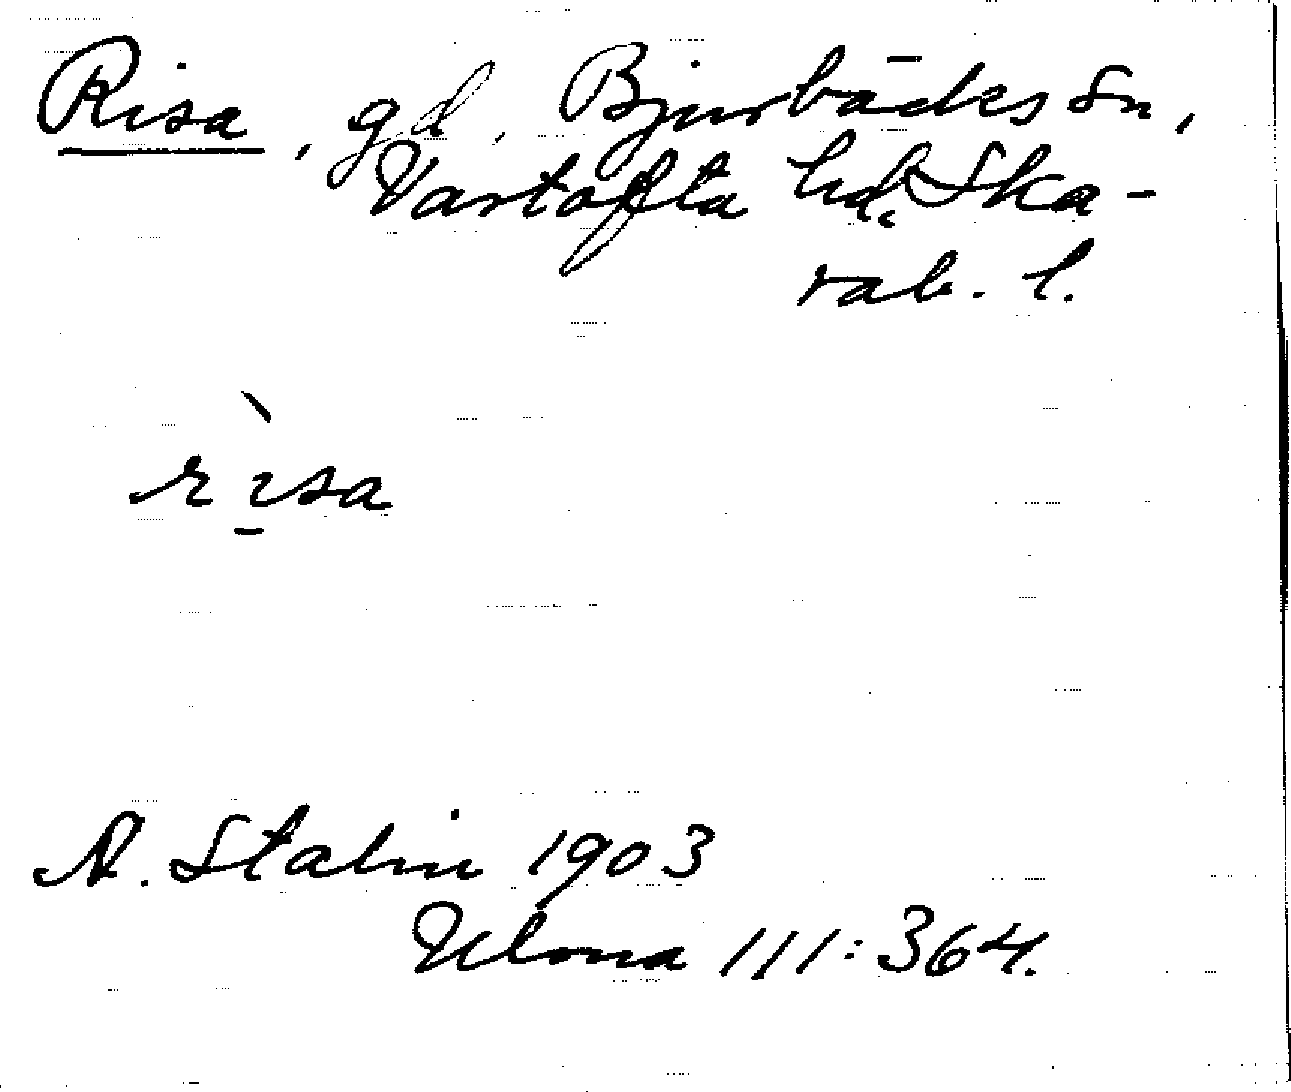 Risa, gd, Bjurbäcks sn,
Vartofta hd, Ska-
rab. l.
rìsa
A. Stalin 1903
Ulona 111:364.